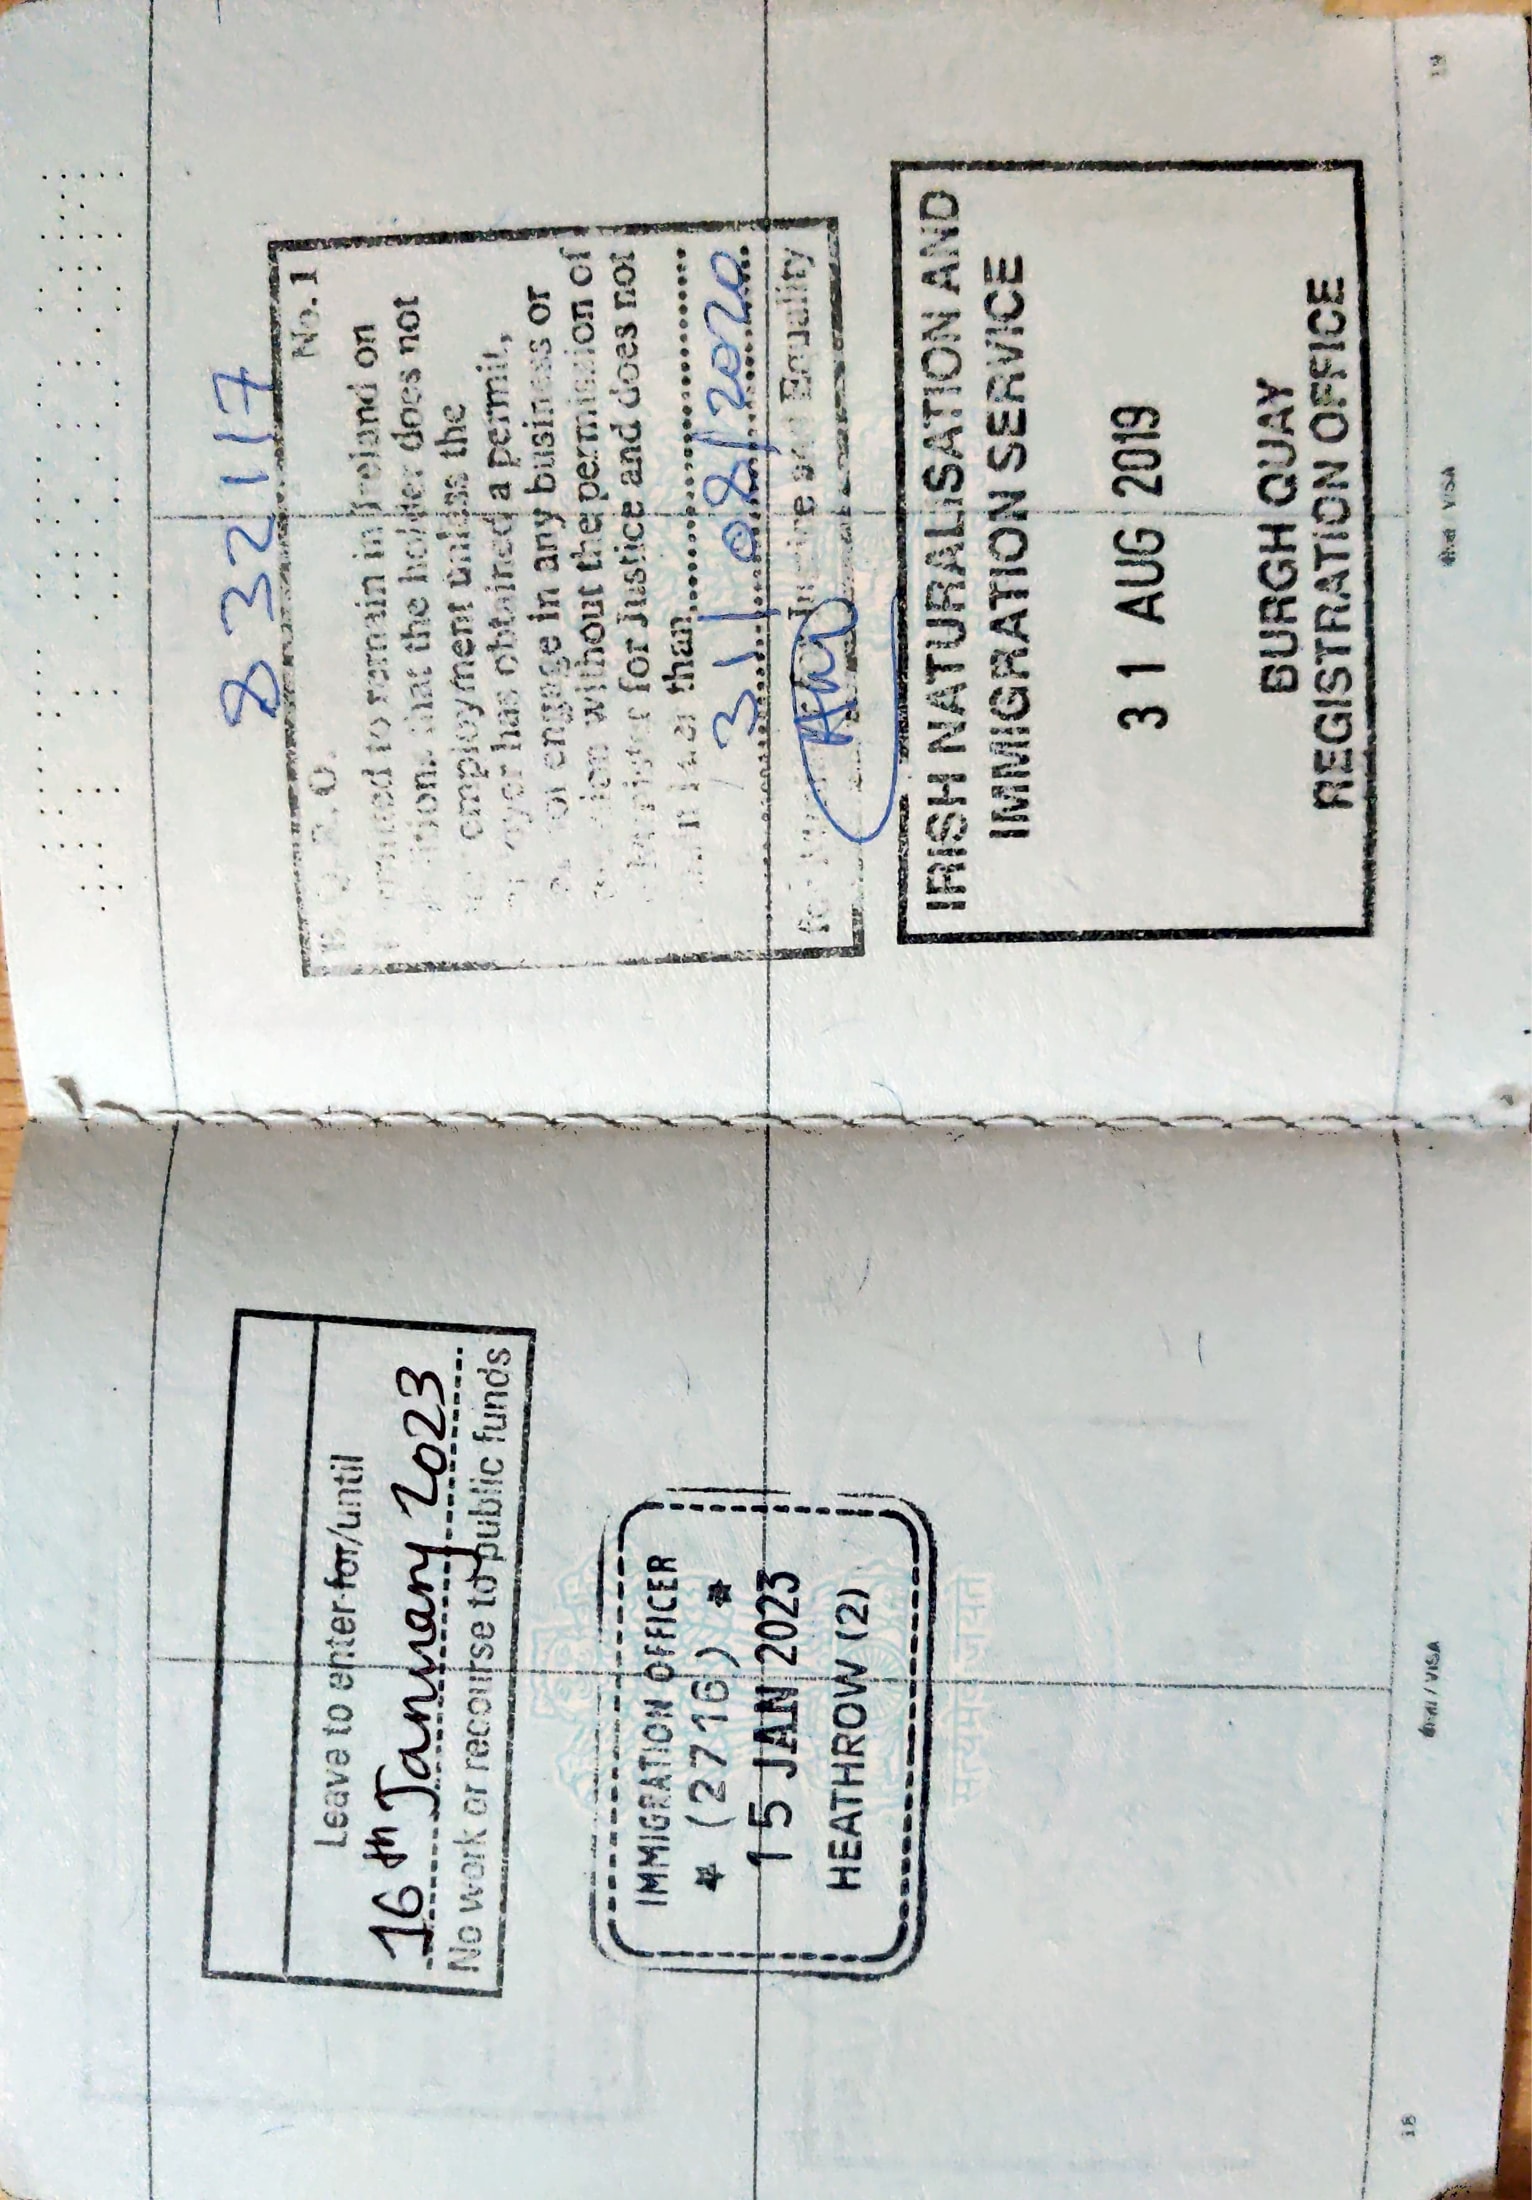 Leave to enter for/until
16th January 2023
No work or recourse to public funds
IMMIGRATION OFFICER
* (2716) *
15 JAN 2023
HEATHROW (2)
सत्यमेव जयते
/ VISA
18
83217
No. 1
to remain in Ireland on
that the holder does not
employment unless the
has obtained a permit,
engage in any business or
without the permission of
for Justice and does not
than
31/08/2020
Equality
IRISH NATURALISATION AND
IMMIGRATION SERVICE
31 AUG 2019
BURGH QUAY
REGISTRATION OFFICE
VISA
19